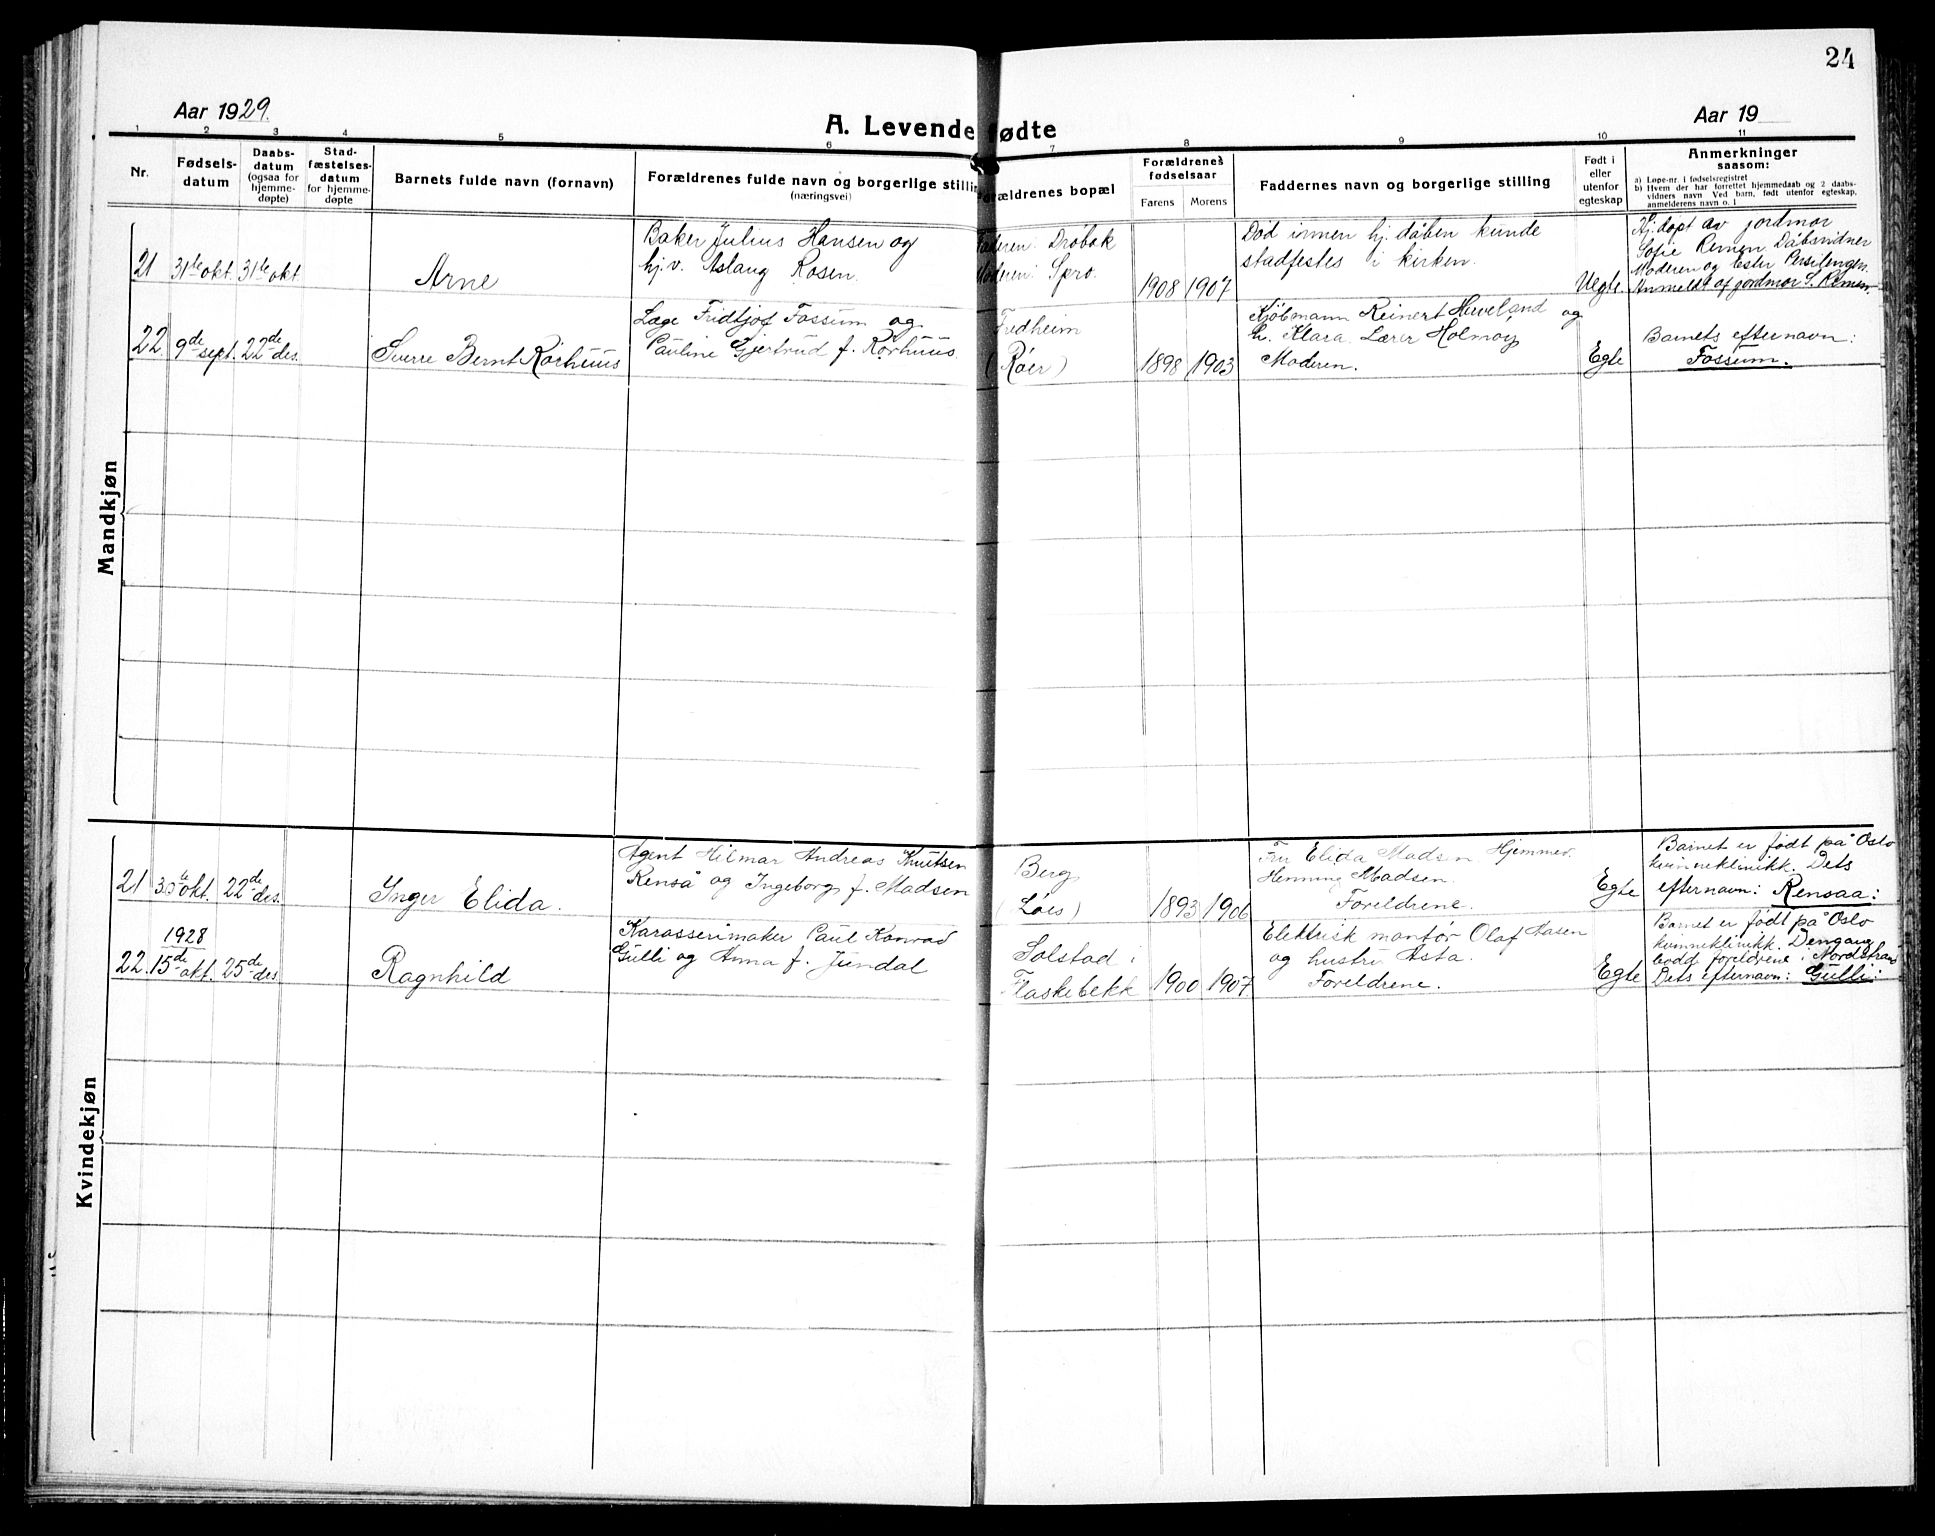 24
Aar 1929.
A. Levende fødte
Aar 19
1 2 3 4 5 6 7 8 9 10 11
Nr.
Fødsels-
datum
Daabs-
datum
(ogsaa for
hjemme-
døpte)
Stad-
fæstelses-
datum
for hjemme-
døpte
Barnets fulde navn (fornavn)
Forældrenes fulde navn og borgerlige stilling
(næringsvei)
Forældrenes bopæl
Forældrenes
fødselsaar
Farens Morens
Faddernes navn og borgerlige stilling
Født i
eller
utenfor
egteskap
Anmerkninger
saasom:
a) Løpe-nr. i fødselsregistret
b) Hvem der har forrettet hjemmedaab og 2 daabs-
vidners navn Ved barn, født utenfor egteskap,
anmelderens navn o. l
Mandkjøn
21 31te okt. 31te okt. Arne
Baker Julius Hansen og
hj.v. Aslaug Rosen.
Faderen: Drøbak
Moderen: Spro.
1908 1907
Död innen hj. dåben kunde
stadfestes i kirken.
Uegte.
Hj.döpt av jordmor
Sofie Remen Dåbsvidner
Moderen og Ester Persilengen.
Anmeldt af jordmor S. Remen.
22 9de sept. 22de des. Sverre Bernt Rörhuus
Læge Fridtjof Fossum og
Pauline Gjertrud f. Rörhuus.
Fredheim
(Röer)
1898 1903
Kjöbmann Reinert Heveland og
h. Klara. Lærer Holmøy
Moderen.
Egte
Barnets efternavn:
Fossum.
Kvindekjøn
21 30te okt. 22de des. Inger Elida.
Agent Hilmar Andreas Knutsen
Renså og Ingeborg f. Madsen
Berg
(Löes)
1893 1906
Fru Elida Madsen Hjemmev.
Henning Madsen.
Foreldrene.
Egte
Barnet er födt på Oslo
kvinneklinikk. Dets
efternavn: Rensaa:
1928
22 15de okt. 25de des. Ragnhild
Karasserimaker Paul Konrad
Gulli og Anna f. Jundal
Solstad i
Flaskebekk
1900 1907
Elektrisk montör Olaf Aasen
og hustru Asta.
Foreldrene.
Egte
Barnet er födt på Oslo
kvinneklinikk. Dengang
bodd foreldrene i Nordstrand
Dets efternavn: Gulli: